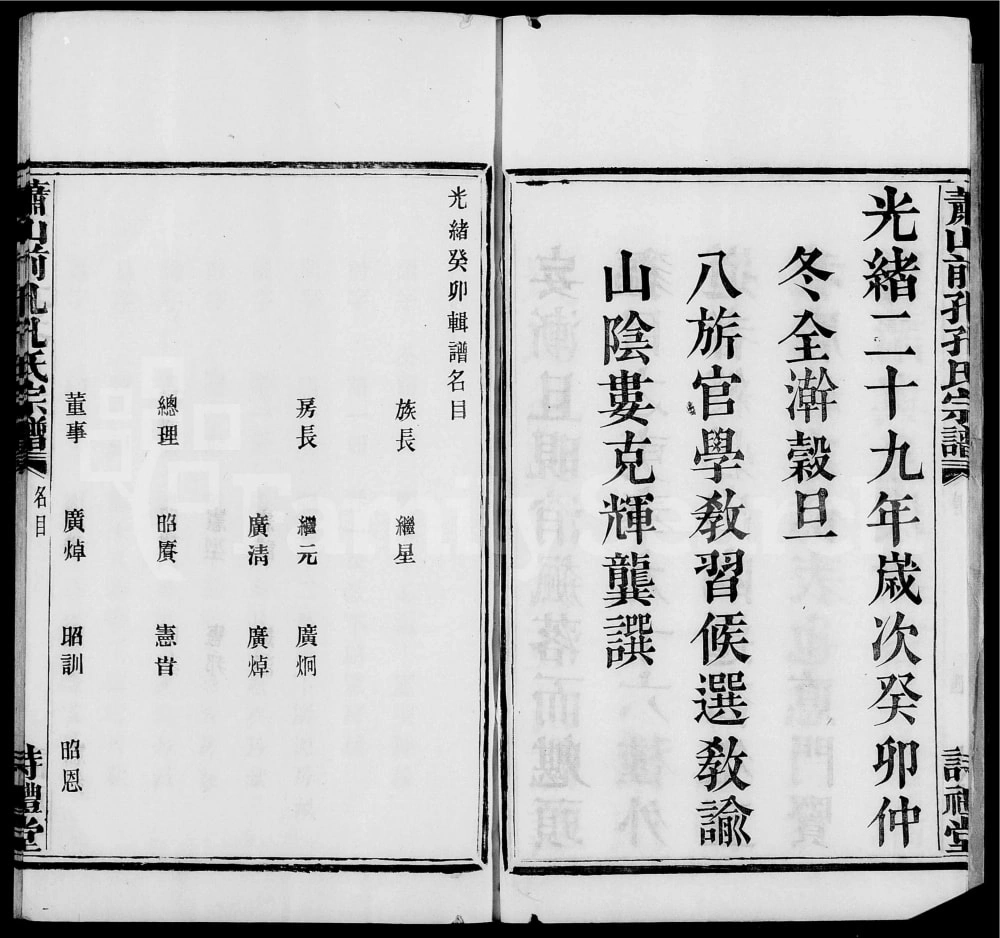 蕭山前孔孔氏宗譜
詩禮堂
光緒二十九年歲次癸卯仲
冬全澣穀旦
八旂官學敎習候選敎諭
山陰婁克輝龔譔
光緒癸卯輯譜名目
族長 繼星
房長 繼元 廣炯
廣清 廣焯
總理 昭賡 憲眚
董事 廣焯 昭訓 昭恩
蕭山前孔孔氏宗譜
名目
詩禮堂